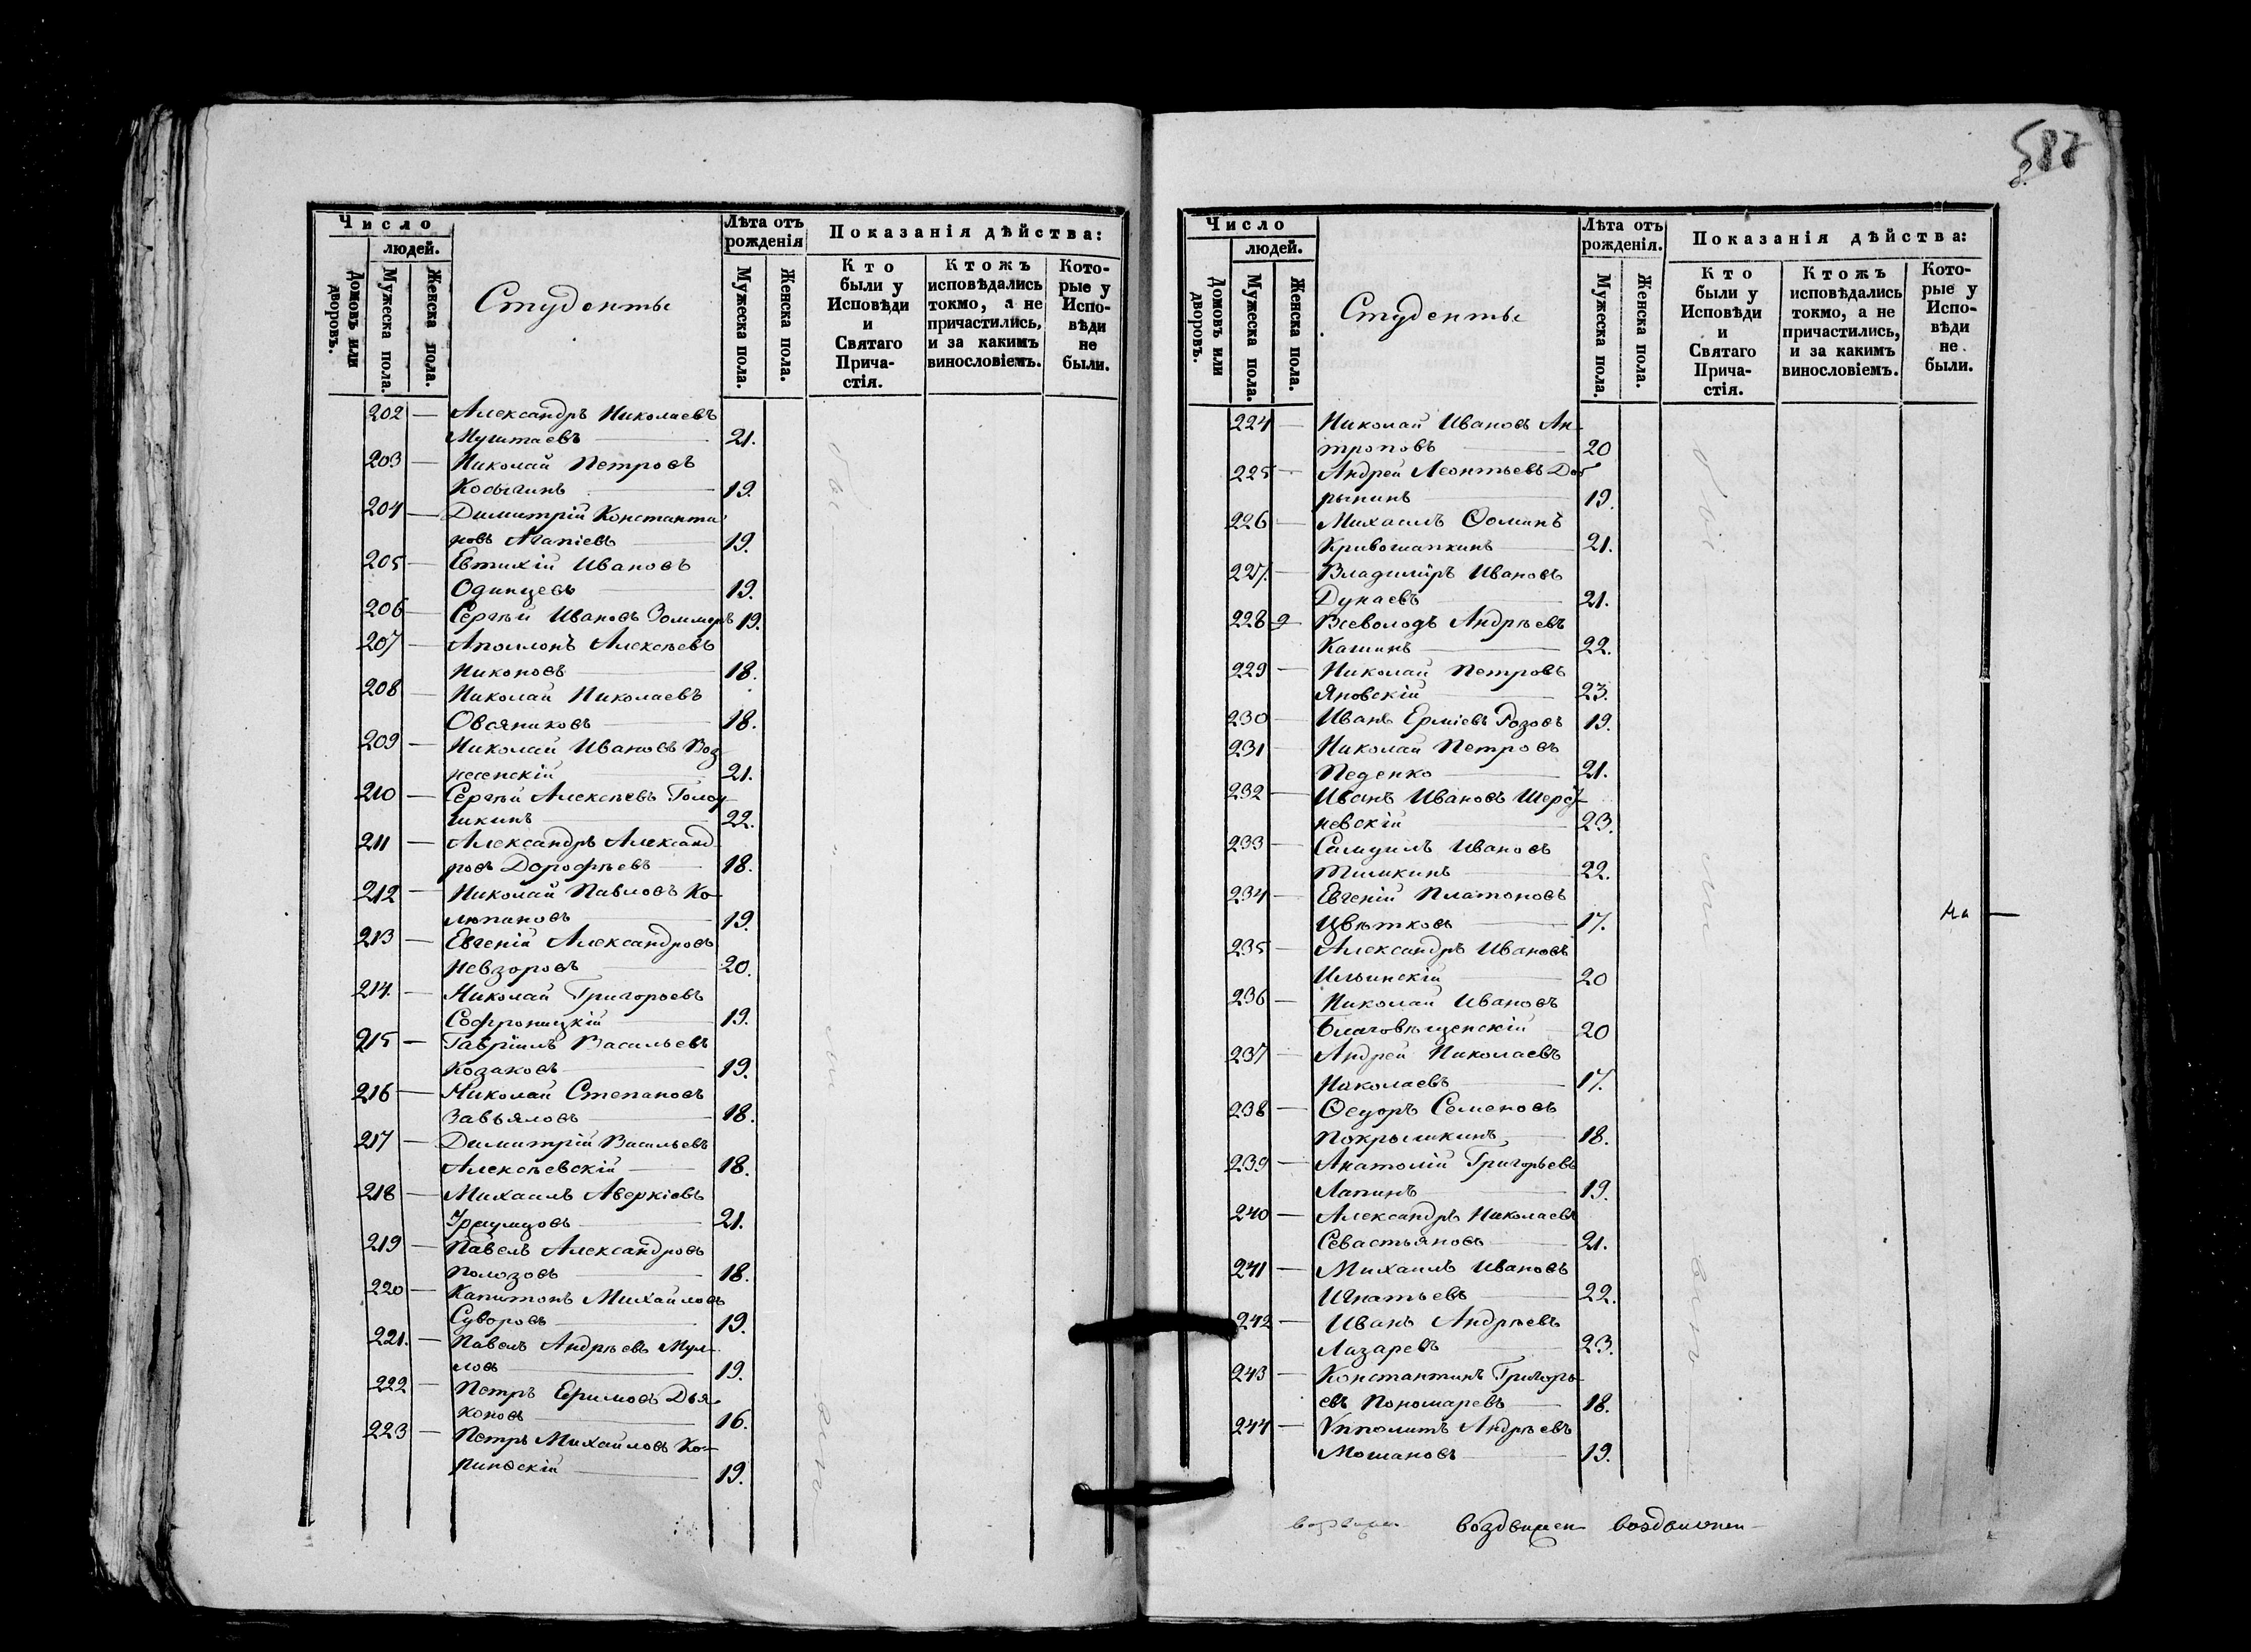 Число
людей.
Домовъ или дворовъ.
Мужеска пола.
Женска пола.
Студенты
Лѣта отъ рожденія
Мужеска пола.
Женска пола.
Показанія дѣйства:
Кто были у Исповѣди и Святаго Прича-стія.
Ктожъ исповѣдались токмо, а не причастились, и за какимъ винословіемъ.
Кото-рые у Испо-вѣди не были.
202 — Александръ Николаевъ
Муштаевъ — 21.
203 — Николай Петровъ
Косыгинъ — 19.
204 — Димитрій Константи
новъ Агапіевъ — 19.
205 — Евтихій Ивановъ
Одинцевъ — 19.
206 — Сергѣй Ивановъ 19.
207 — Аполлонъ Алексѣевъ
Никоновъ — 18.
208 — Николай Николаевъ
Овсяниковъ — 18.
209 — Николай Ивановъ Воз
несенскій — 21.
210 — Сергѣй Алексѣевъ Голоу
шкинъ — 22.
211 — Александръ Александ
ровъ Дорофѣевъ — 18.
212 — Николай Павловъ Ко-
люпановъ — 19.
213 — Евгеній Александровъ
Невзоровъ — 20.
214. — Николай Григорьевъ
Софроницкій — 19.
215 — Гавріилъ Васильевъ
Козаковъ — 19.
216 — Николай Степановъ
Завьяловъ — 18.
217 — Димитрій Васильевъ
Алексѣевскій — 18.
218 — Михаилъ Аверкіевъ
21.
219 — Павелъ Александровъ
Полозовъ — 18.
220 — Капитонъ Михайловъ
Суворовъ — 19.
221. — Павелъ Андрѣевъ Мул-
ловъ — 19.
222 — Петръ Ефимовъ Дья
коновъ — 16.
223 — Петръ Михайловъ Ко-
ринѳскій — 19.
587
Число
людей.
Домовъ или дворовъ.
Мужеска пола.
Женска пола.
Студенты
Лѣта отъ рожденія.
Мужеска пола.
Женска пола.
Показанія дѣйства:
Кто были у Исповѣди и Святаго Прича-стія.
Ктожъ исповѣдались токмо, а не причастились, и за какимъ винословіемъ.
Кото-рые у Испо-вѣди не были.
224 — Николай Ивановъ Ан-
троповъ — 20
225 — Андрей Леонтьевъ Доб
рынинъ — 19.
226 — Михаилъ Ѳоминъ
Кривошапкинъ — 21.
227. — Владиміръ Ивановъ
Дунаевъ — 21.
228 — Всеволодъ Андрѣевъ
Кашинъ — 22.
229 — Николай Петровъ
Яновскій — 23.
230 — Иванъ Ерміевъ Розовъ 19.
231 — Николай Петровъ
Педенко — 21.
232 — Иванъ Ивановъ
невскій — 23.
233 — Самуилъ Ивановъ
Тишкинъ — 22.
234 — Евгеній Платоновъ
Цвѣтковъ — 17.
235 — Александръ Ивановъ
Ильинскій — 20
236 — Николай Ивановъ
Благовѣщенскій — 20
237 — Андрей Николаевъ
Николаевъ — 17.
238 — Ѳедоръ Семеновъ
Покрышкинъ — 18.
239 — Анатолій Григорьевъ
Лапинъ — 19.
240 — Александръ Николаевъ
Севастьяновъ — 21.
241 — Михаилъ Ивановъ
Игнатьевъ — 22.
242 — Иванъ Андрѣевъ
Лазаревъ — 23.
243 — Константинъ Григорь-
евъ Пономаревъ — 18.
244 — Ѵпполитъ Андрѣевъ
Мошановъ — 19.